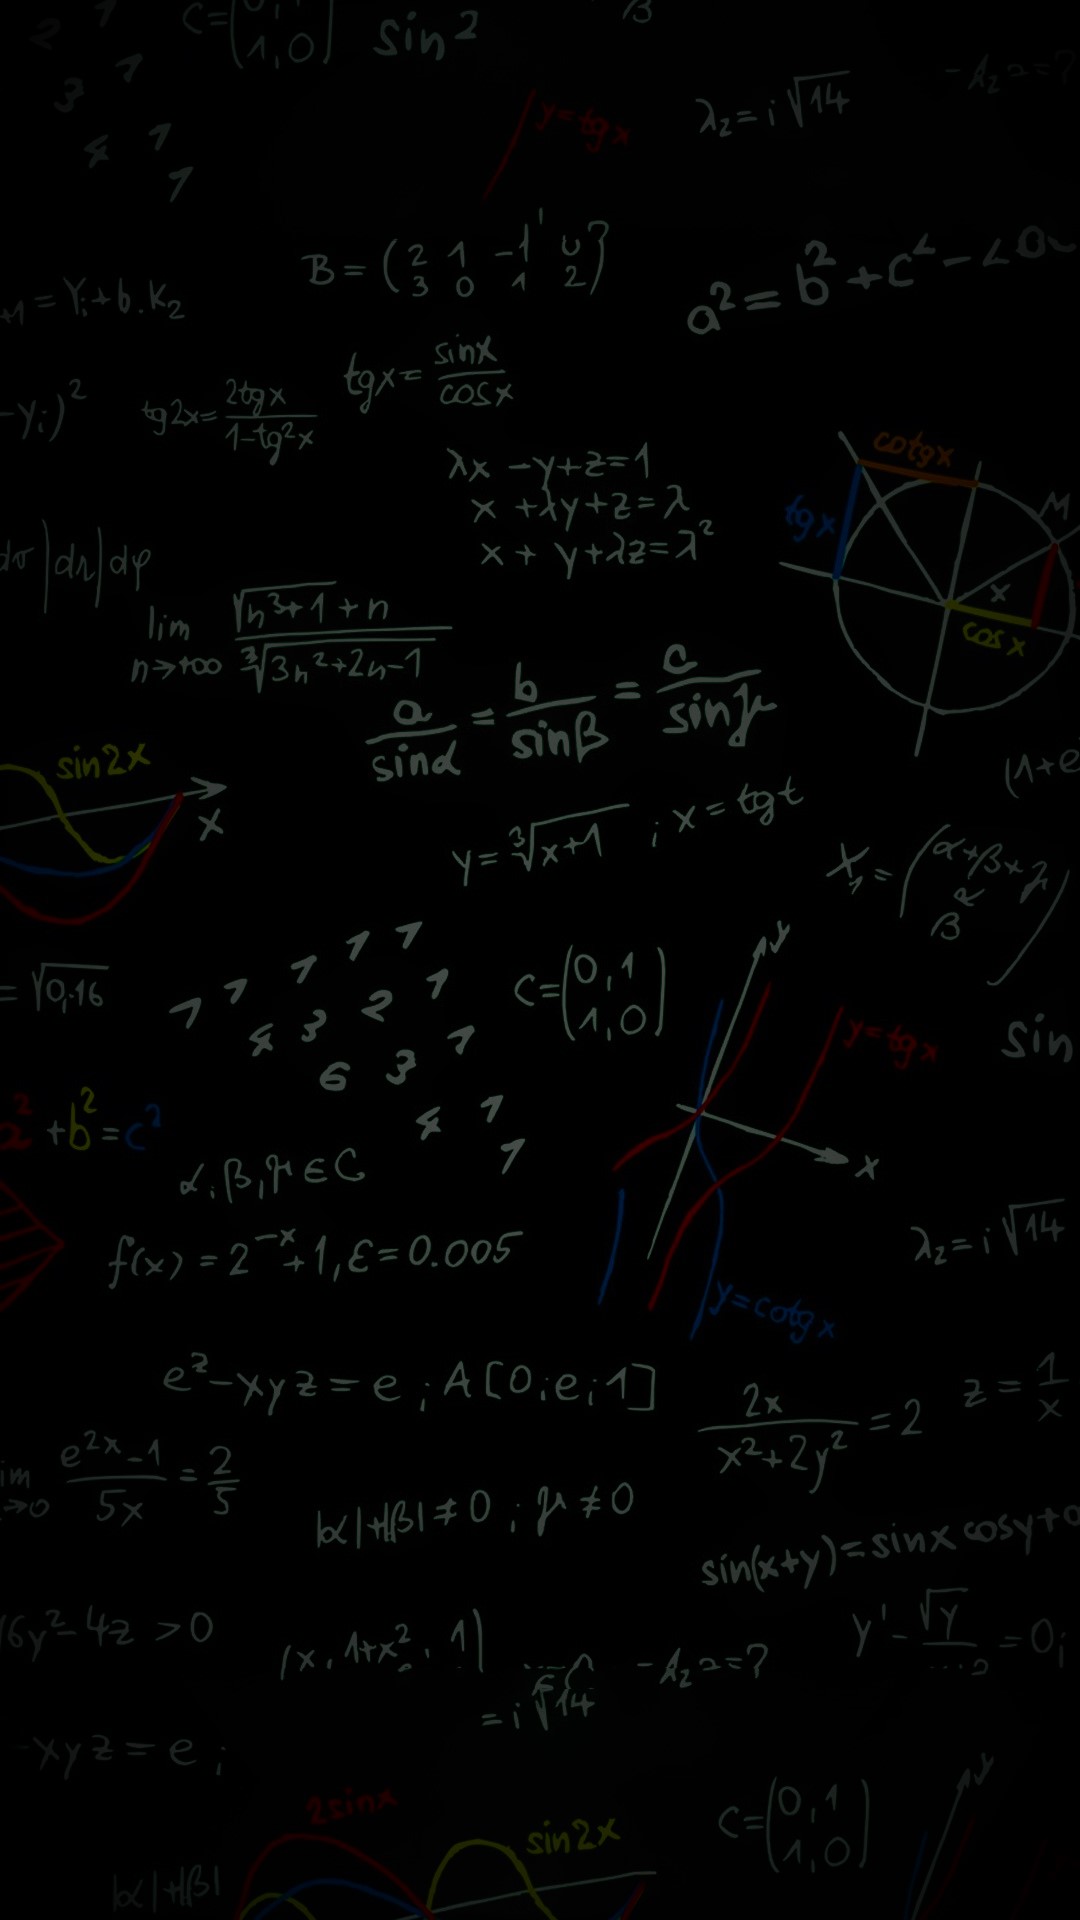 C = (0, 1
1, 0)
sin 2
β
2 1
3 1
4 1
1
y = tg x
λ₂ = i √14
-λ₂ 2 = ?
B = (2 1 -1 0
3 0 1 2)
+1 = Yᵢ + b . K₂
a² = b² + c² - 2a
tg x = sin x / cos x
- Yᵢ)²
tg2x = 2tg x / 1 - tg²x
λx - y + z = 1
x + λy + z = λ
x + y + λz = λ²
cotg x
tg x
M
x
cos x
|dr| dφ
lim n→+∞ √n³+1 + n / ∛3n²+2n-1
a / sin α = b / sin β = c / sin γ
sin 2x
x
(1 + e
y = ∛x+1 ; x = tg t
X₁ = (α + β + γ
β)
= √0,16
1 1 1 1 1
4 3 2 1
6 3 1
4 1
1
C = (0, 1
1, 0)
y
y = tg x
x
y = cotg x
sin
a² + b² = c²
α, β, γ ∈ C
f(x) = 2^-x + 1, ε = 0.005
λ₂ = i √14
e^z - xyz = e ; A [0; e; 1]
2x / x² + 2y² = 2
z = 1 / x
im →0 e^2x - 1 / 5x = 2 / 5
|α| + |β| ≠ 0 ; γ ≠ 0
sin(x+y) = sin x cos y + c
6y² - 4z > 0
(x, 1+x², 1)
= i √14
-λ₂ 2 = ?
y' - √y = 0;
- xyz = e ;
2 sin x
sin 2x
C = (0, 1
1, 0)
y
|α| + |β|